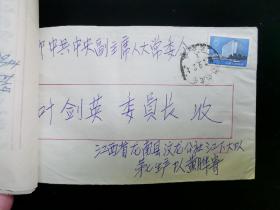 中共中央副主席人大常委会
叶剑英 委員长 收
江西省龙南县汶龙公社江下大队
第七生产队黄